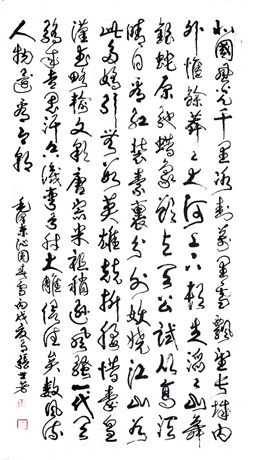 北國風光千里冰封萬里雪飄望長城内
外惟餘莽莽大河上下頓失滔滔山舞
銀蛇原馳蠟象欲與天公試比高須
晴日看紅裝素裹分外妖嬈江山如
此多嬌引無數英雄競折腰惜秦皇
漢武略輸文采唐宗宋祖稍遜風騷一代天
驕成吉思汗只識彎弓射大雕俱往矣數風流
人物還看今朝
毛澤東沁園春雪丙戌